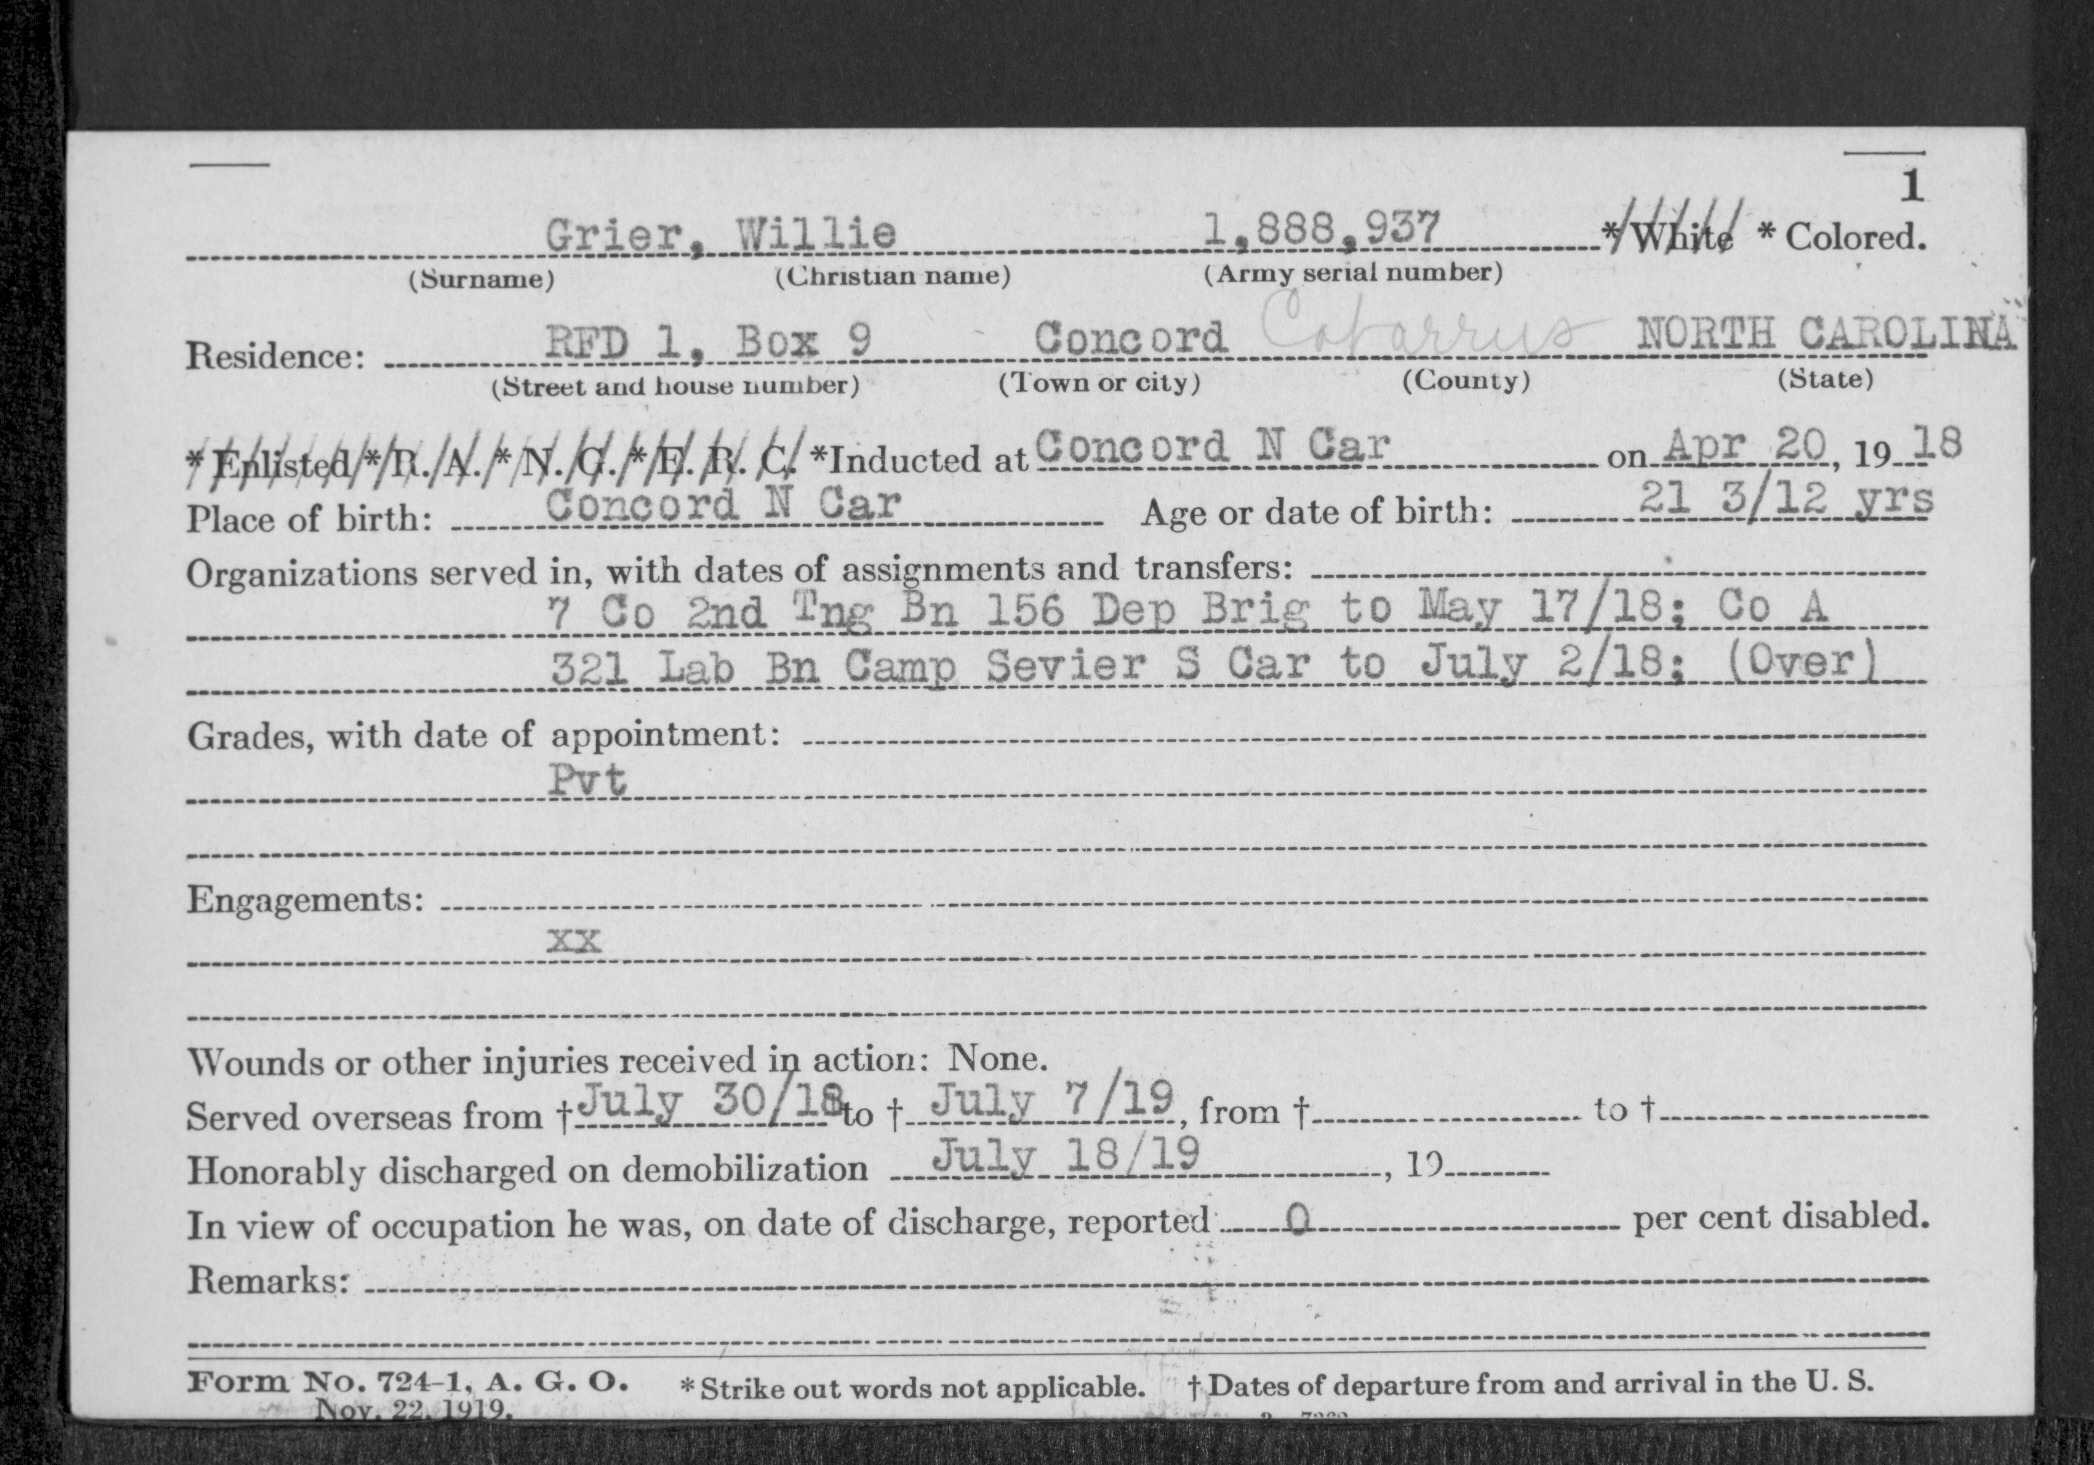 1
Grier, Willie 1,888,937 * White * Colored.
(Surname) (Christian name) (Army serial number)
Residence: RFD 1, Box 9 Concord Cabarrus NORTH CAROLINA
(Street and house number) (Town or city) (County) (State)
* Enlisted * R. A. * N. G. * E. R. C. *Inducted at Concord N Car on Apr 20, 19 18
Place of birth: Concord N Car Age or date of birth: 21 3/12 yrs
Organizations served in, with dates of assignments and transfers:
7 Co 2nd Tng Bn 156 Dep Brig to May 17/18; Co A
321 Lab Bn Camp Sevier S Car to July 2/18; (Over)
Grades, with date of appointment:
Pvt
Engagements:
xx
Wounds or other injuries received in action: None.
Served overseas from † July 30/18 to † July 7/19, from † to †
Honorably discharged on demobilization July 18/19, 19
In view of occupation he was, on date of discharge, reported 0 per cent disabled.
Remarks:
Form No. 724-1, A. G. O. * Strike out words not applicable. † Dates of departure from and arrival in the U. S.
Nov. 22, 1919.